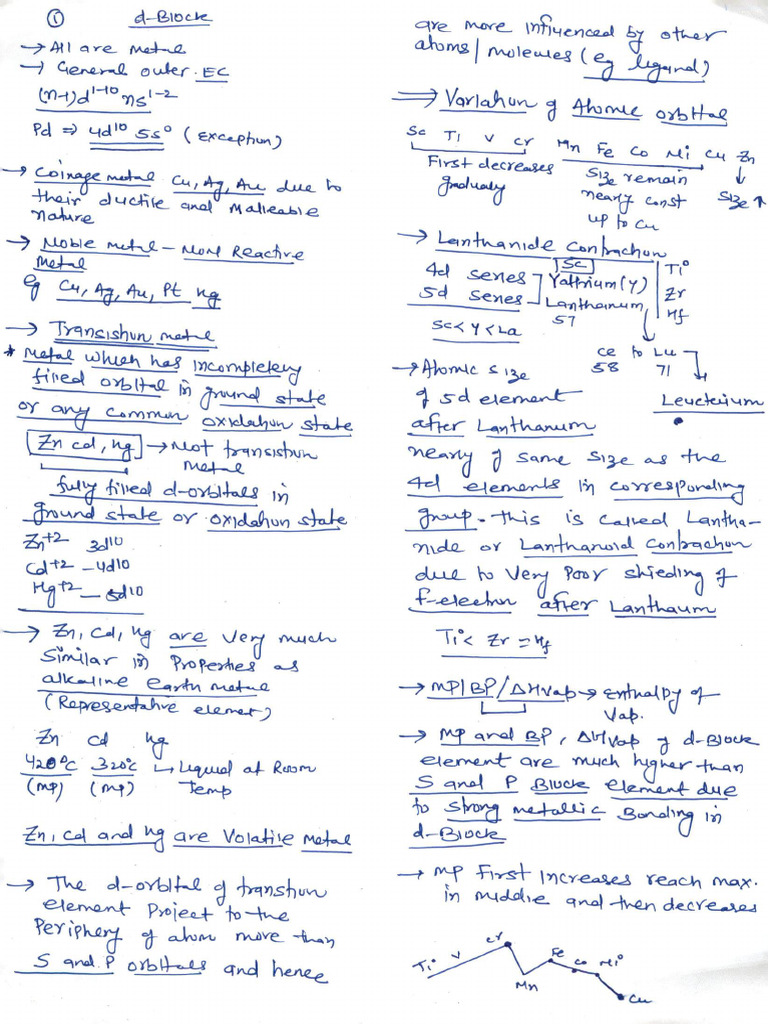 ① d-Block
→ All are metal
→ General outer EC
(n-1)d¹⁻¹⁰ ns¹⁻²
Pd ⇒ 4d¹⁰ 5s⁰ (Exception)
→ Coinage metal Cu, Ag, Au due to
their ductile and Malleable
nature
→ Noble metal - Non Reactive
metal
eg Cu, Ag, Au, Pt Hg
→ Transishun metal
* Metal which has incompletely
filled orbital in ground state
or any common oxidation state
Zn Cd, Hg → Not transition
metal
fully filled d-orbitals in
ground state or oxidation state
Zn⁺² 3d¹⁰
Cd⁺² - 4d¹⁰
Hg⁺² - 5d¹⁰
→ Zn, Cd, Hg are very much
similar in Properties as
alkaline earth metal
(Representative element)
Zn Cd Hg
420°C 320°C ↳ Liquid at Room
(mp) (mp) Temp
Zn, Cd and Hg are Volatile Metal
→ The d-orbital of transition
element Project to the
Periphery of atom more than
S and P orbitals and hence
are more influenced by other
atoms/molecules (eg ligand)
⇒ Variation of Atomic orbital
Sc Ti V Cr Mn Fe Co Ni Cu Zn
First decreases gradualy
Size remain nearly const up to Cu
Size ↑
→ Lanthanide Contraction
Sc Ti
4d series Yathrium (Y) Zr
5d series Lanthanum Hf
Sc < Y < La 57
Ce to Lu
58 71
Leucterium
→ Atomic size
of 5d element
after Lanthanum
nearly of same size as the
4d elements in corresponding
group. This is called Lantha-
nide or Lanthanoid Contraction
due to very Poor shieding of
f-electron after Lanthaum
Ti < Zr = Hf
→ MP/BP/ΔHvap → Enthalpy of
Vap.
→ Mp and BP, ΔHvap of d-Block
element are much higher than
S and P Block element due
to strong metallic Bonding in
d-Block
→ MP First increases reach max.
in middle and then decreases
Ti V Cr Mn Fe Co Ni Cu